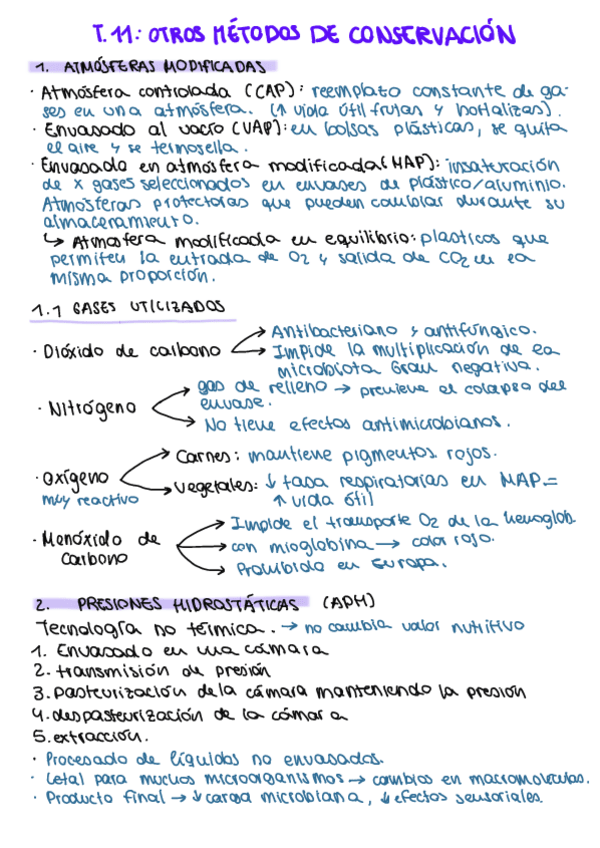 T.11: OTROS MÉTODOS DE CONSERVACIÓN
1. ATMÓSFERAS MODIFICADAS
· Atmósfera controlada (CAP): reemplato constante de ga-
ses en una atmósfera. (↑ vida útil frutas y hortalizas).
· Envasado al vacío (VAP): en bolsas plásticas, se quita
el aire y se termosella.
· Envasado en atmósfera modificada (MAP): insaturación
de x gases seleccionados en envases de plástico/aluminio.
Atmósferas protectoras que pueden cambiar durante su
almacenamiento.
↳ Atmosfera modificada en equilibrio: plasticos que
permiten la entrada de O2 y salida de CO2 en la
misma proporción.
1.1 GASES UTILIZADOS
· Dióxido de carbono → Antibacteriano y antifúngico.
→ Impide la multiplicación de la
microbiota Gram negativa.
· Nitrógeno → gas de relleno → previene el colapso del
envase.
→ No tiene efectos antimicrobianos.
· Oxígeno → Carnes: mantiene pigmentos rojos.
muy reactivo → Vegetales: ↓ tasa respiratorias en MAP =
↑ vida útil
· Monóxido de carbono → Impide el transporte O2 de la hemoglob.
→ con mioglobina → color rojo.
→ Prohibido en Europa.
2. PRESIONES HIDROSTÁTICAS (APH)
Tecnología no térmica. → no cambia valor nutritivo
1. Envasado en una cámara
2. transmisión de presión
3. Pasteurización de la cámara manteniendo la presión
4. despasteurización de la cámara
5. extracción.
· Procesado de líquidos no envasados.
· Letal para muchos microorganismos → cambios en macromoléculas.
· Producto final → ↓ carga microbiana, ↓ efectos sensoriales.